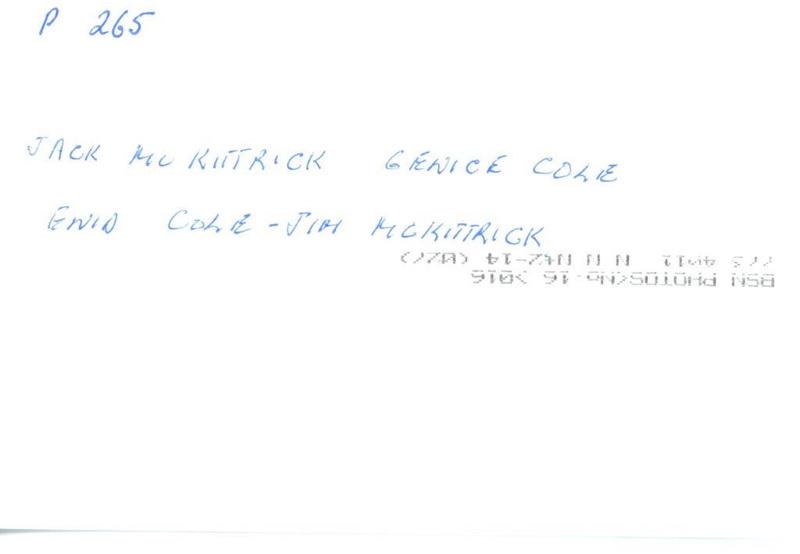 P 265
JACK MCKITTRICK GENICE COLE
ENID COLE - JIM MCKITTRICK
BSN PHOTOS(No. 16 >016